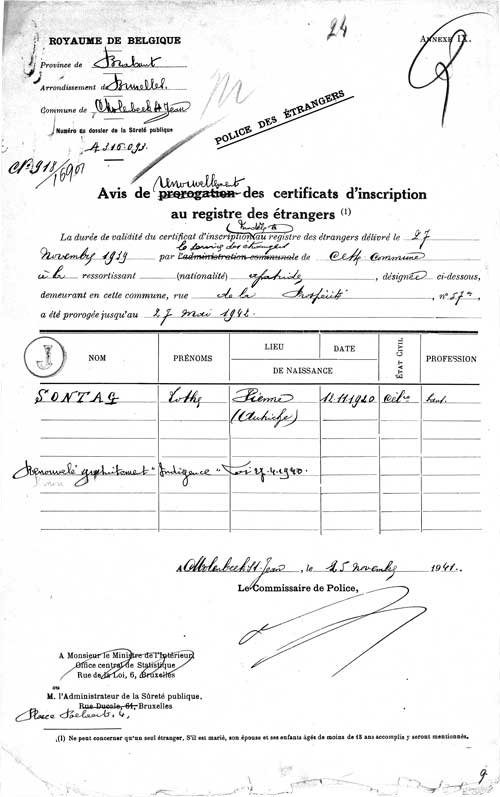 24
ANNEXE IX.
ROYAUME DE BELGIQUE
Province de Brabant
Arrondissement de Bruxelles.
Commune de Molenbeek St Jean
Numéro du dossier de la Sûreté publique
A 316.093.
POLICE DES ÉTRANGERS
Renouvellement
Avis de prorogation des certificats d'inscription
au registre des étrangers (1)
La durée de validité du certificat d'inscription au registre des étrangers délivré le 27
Novembre 1939 par l'administration communale de Cette Commune
à la ressortissant (nationalité) apatride, désignée ci-dessous,
demeurant en cette commune, rue de la Prospérité, n° 57
a été prorogée jusqu'au 27 mai 1942.
J
NOM PRÉNOMS LIEU DATE DE NAISSANCE ÉTAT CIVIL PROFESSION
SONTAG Vienne 12.11.1920 Célre
(Autriche)
Renouvelé gratuitement "Indigence" Loi 27.4.1940.
A Molenbeek St-Jean, le 25 novembre 1941.
Le Commissaire de Police,
A Monsieur le Ministre de l'Intérieur,
Office central de Statistique
Rue de la Loi, 6, Bruxelles
ou
M. l'Administrateur de la Sûreté publique,
Rue Ducale, 61, Bruxelles
Place
(1) Ne peut concerner qu'un seul étranger. S'il est marié, son épouse et ses enfants âgés de moins de 15 ans accomplis y seront mentionnés.
9